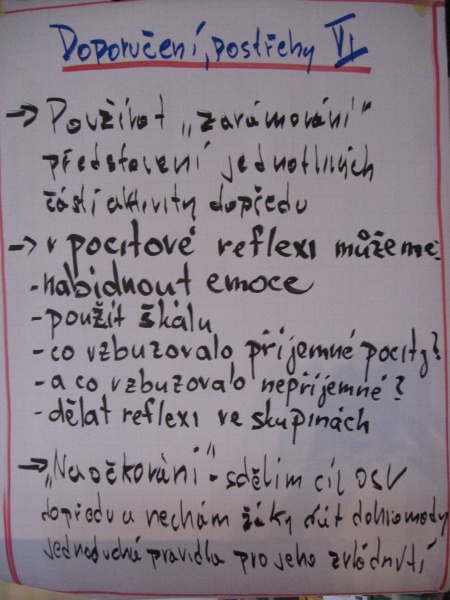 Doporučení, postřehy VI
→ Používat „zarámování"
představení jednotlivých
částí aktivity dopředu
→ v pocitové reflexi můžeme:
- nabídnout emoce
- použít škálu
- co vzbuzovalo příjemné pocity?
- a co vzbuzovalo nepříjemné?
- dělat reflexi ve skupinách
→ „Naočkování" - sdělím cíl OSV
dopředu a nechám žáky dát dohromady
jednoduchá pravidla pro jeho zvládnutí